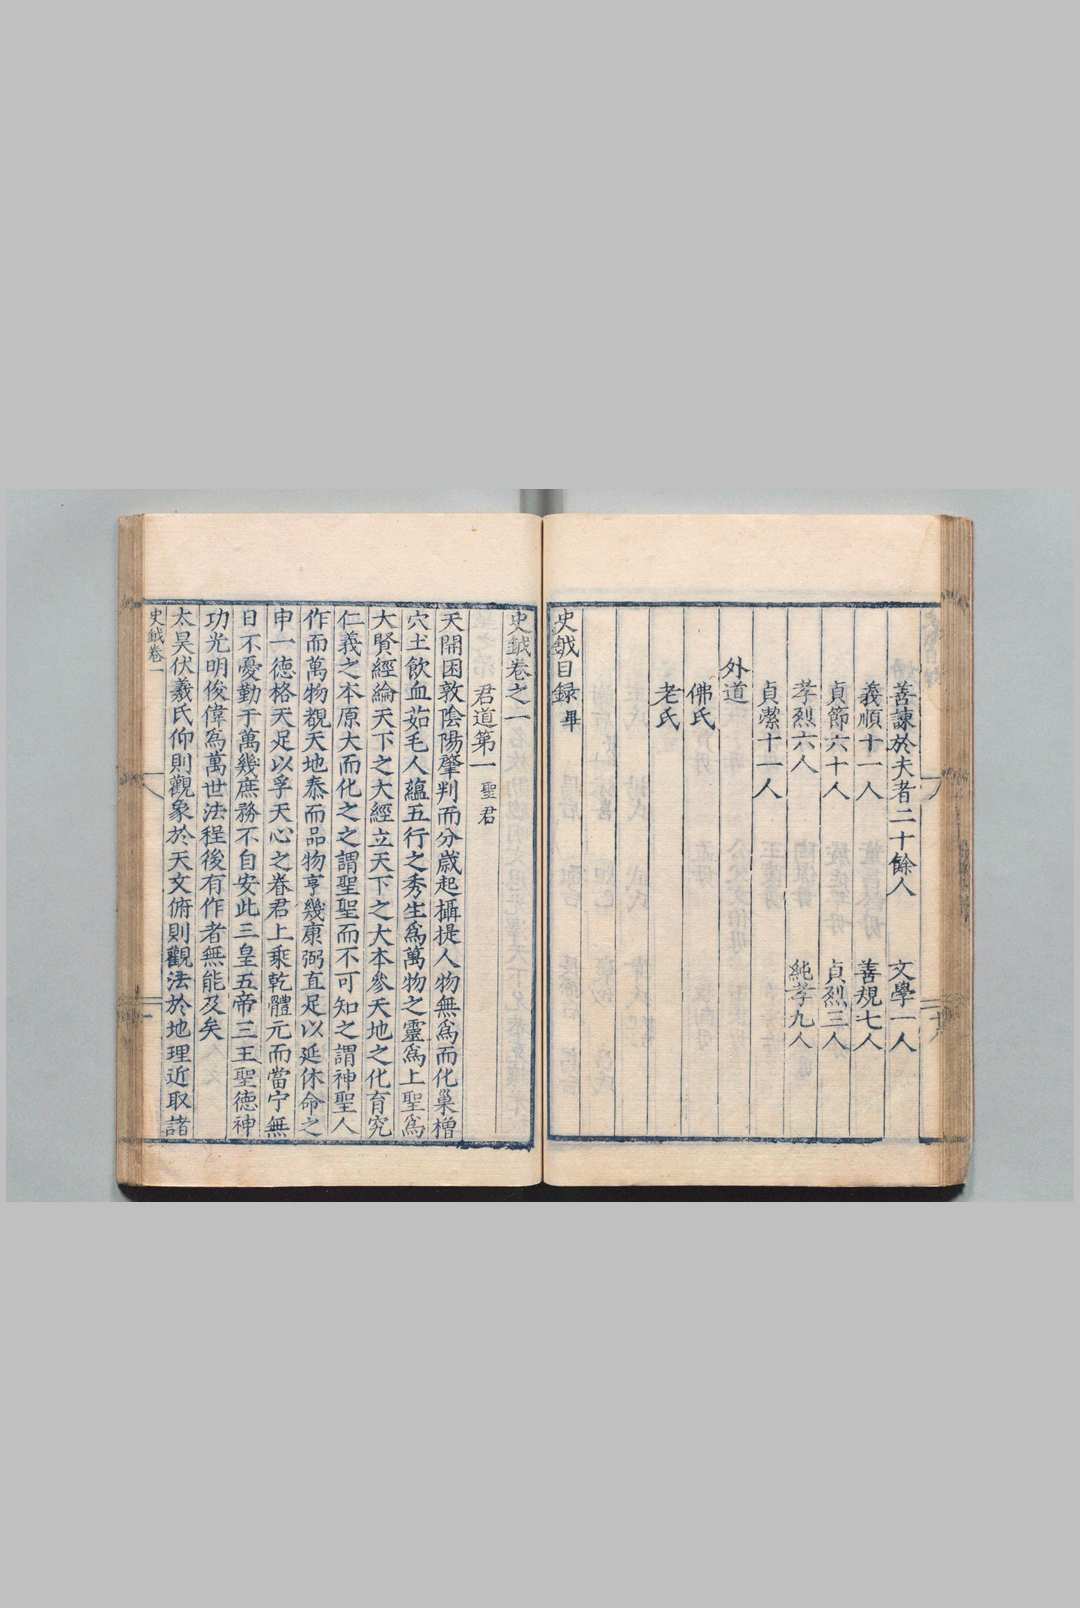 善諫於夫者二十餘人 文學一人
義順十一人 善規七人
貞節六十人 貞烈三人
孝烈六人 純孝九人
貞潔十一人
外道
佛氏
老氏
史鉞目録畢
史鉞卷之一
君道第一 聖君
天開困敦陰陽肇判而分歲起攝提人物無爲而化巢橧
穴土飲血茹毛人蘊五行之秀生爲萬物之靈爲上聖爲
大賢經綸天下之大經立天下之大本參天地之化育究
仁義之本原大而化之之謂聖聖而不可知之謂神聖人
作而萬物覩天地泰而品物亨幾康弼直足以延休命之
申一德格天足以孚天心之眷君上乘乾體元而當宁無
日不憂勤于萬幾庶務不自安此三皇五帝三王聖德神
功光明俊偉為萬世法程後有作者無能及矣
太昊伏羲氏仰則觀象於天文俯則觀法於地理近取諸
史鉞卷一